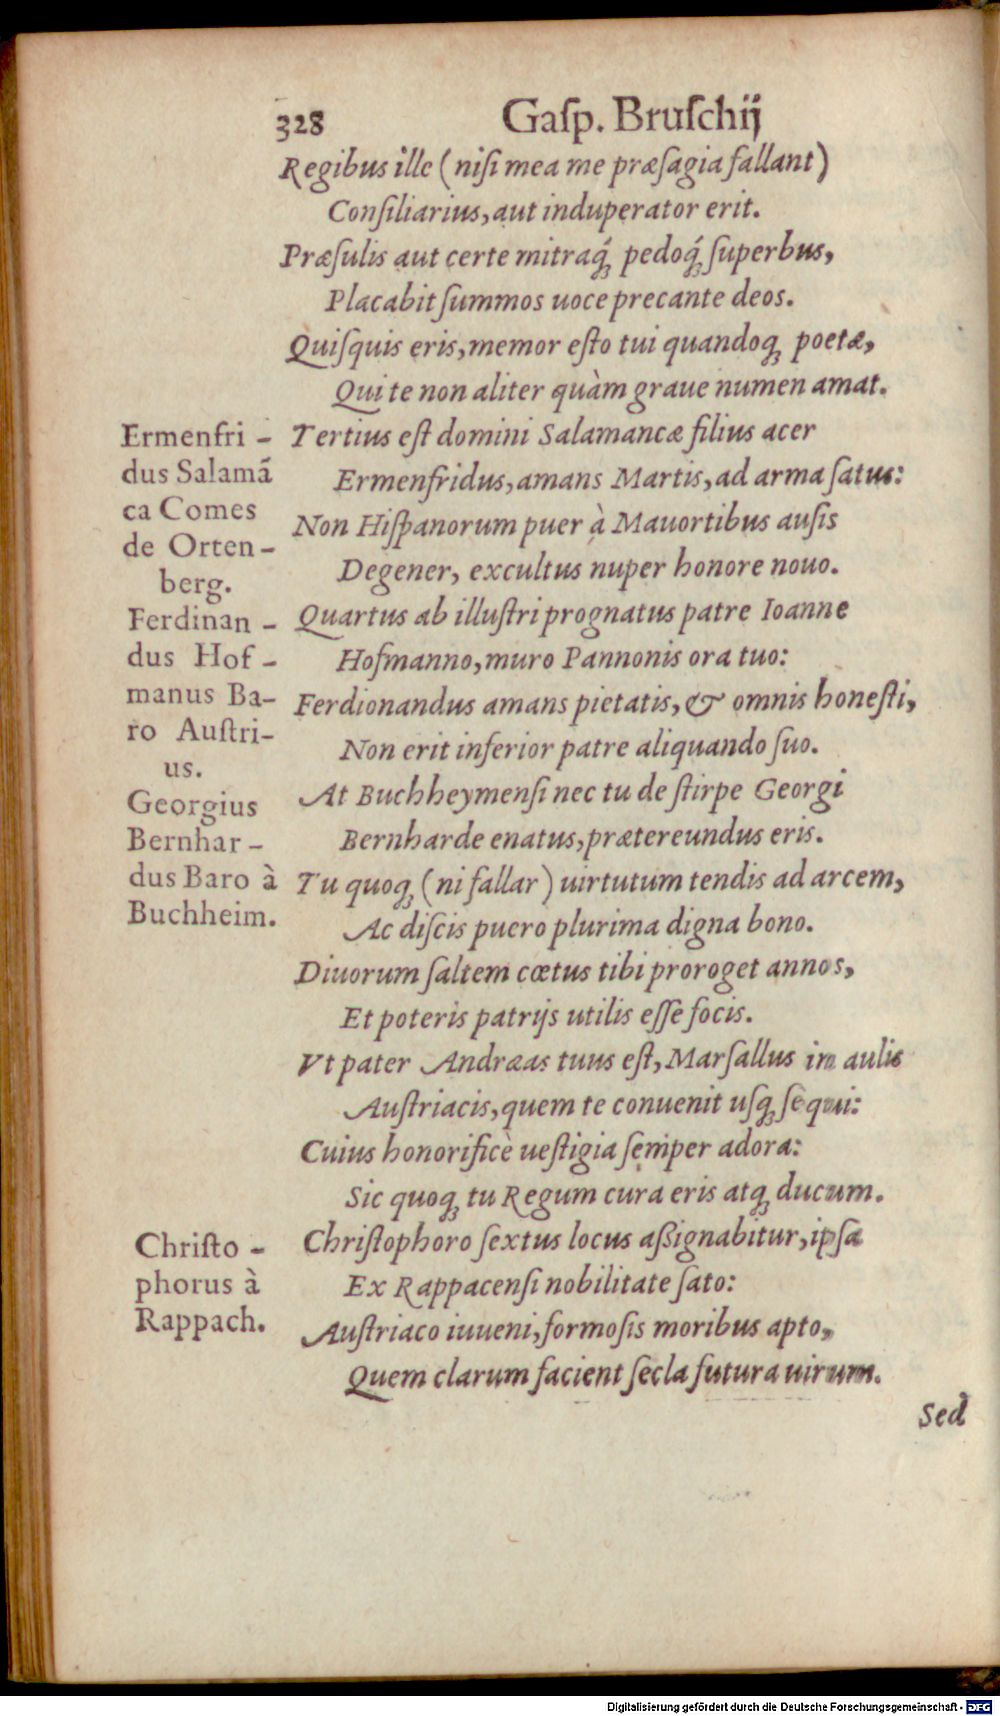 328 Gaſp. Bruſchij
Regibus ille (niſi mea me præſagia fallant)
Conſiliarius, aut induperator erit.
Præſulis aut certe mitraq́ꝫ pedoq́ꝫ ſuperbus,
Placabit ſummos uoce precante deos.
Quiſquis eris, memor eſto tui quandoqꝫ poetæ,
Qui te non aliter quàm graue numen amat.
Ermenfri-
dus Salamã
ca Comes
de Orten-
berg.
Tertius eſt domini Salamancæ filius acer
Ermenfridus, amans Martis, ad arma ſatus:
Non Hiſpanorum puer à Mauortibus auſis
Degener, excultus nuper honore nouo.
Ferdinan-
dus Hof-
manus Ba-
ro Auſtri-
us.
Quartus ab illuſtri prognatus patre Ioanne
Hofmanno, muro Pannonis ora tuo:
Ferdionandus amans pietatis, & omnis honeſti,
Non erit inferior patre aliquando ſuo.
Georgius
Bernhar-
dus Baro à
Buchheim.
At Buchheymenſi nec tu de ſtirpe Georgi
Bernharde enatus, prætereundus eris.
Tu quoqꝫ (ni fallar) uirtutum tendis ad arcem,
Ac diſcis puero plurima digna bono.
Diuorum ſaltem cœtus tibi proroget annos,
Et poteris patrijs utilis eſſe focis.
Vt pater Andræas tuus eſt, Marſallus in aulis
Auſtriacis, quem te conuenit uſqꝫ ſequi:
Cuius honorificè ueſtigia ſemper adora:
Sic quoqꝫ tu Regum cura eris atqꝫ ducum.
Chriſto-
phorus à
Rappach.
Chriſtophoro ſextus locus aßignabitur, ipſa
Ex Rappacenſi nobilitate ſato:
Auſtriaco iuueni, formoſis moribus apto,
Quem clarum facient ſecla futura uirum.
Sed
Digitalisierung gefördert durch die Deutsche Forschungsgemeinschaft - DFG